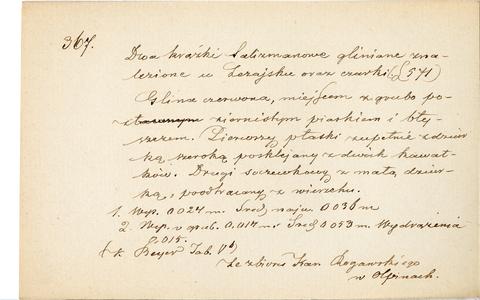 367.
Dwa krążki Talizmanowe gliniane zna-
lezione w Leżajsku oraz czurki (571)
Glina czerwona, miejscem z grubo po-
ziarnistym piaskiem i bły-
szczem. Pierwszy płaski zupełnie z dziur
ką szeroką posklejany z dwóch kawał-
ków. Drugi soczewkowy z małą dziur-
ką, poodbijany z wierzchu.
1. Wys. 0.027 m. Śred. najw. 0.036 m
2. Wys. v grub. 0.017 m. Śred 0.053 m. Wydrążenia
0.015.
(k. Beyer Tab. V)
Ze zbioru Kar. Rogawskiego
w Ołpinach.